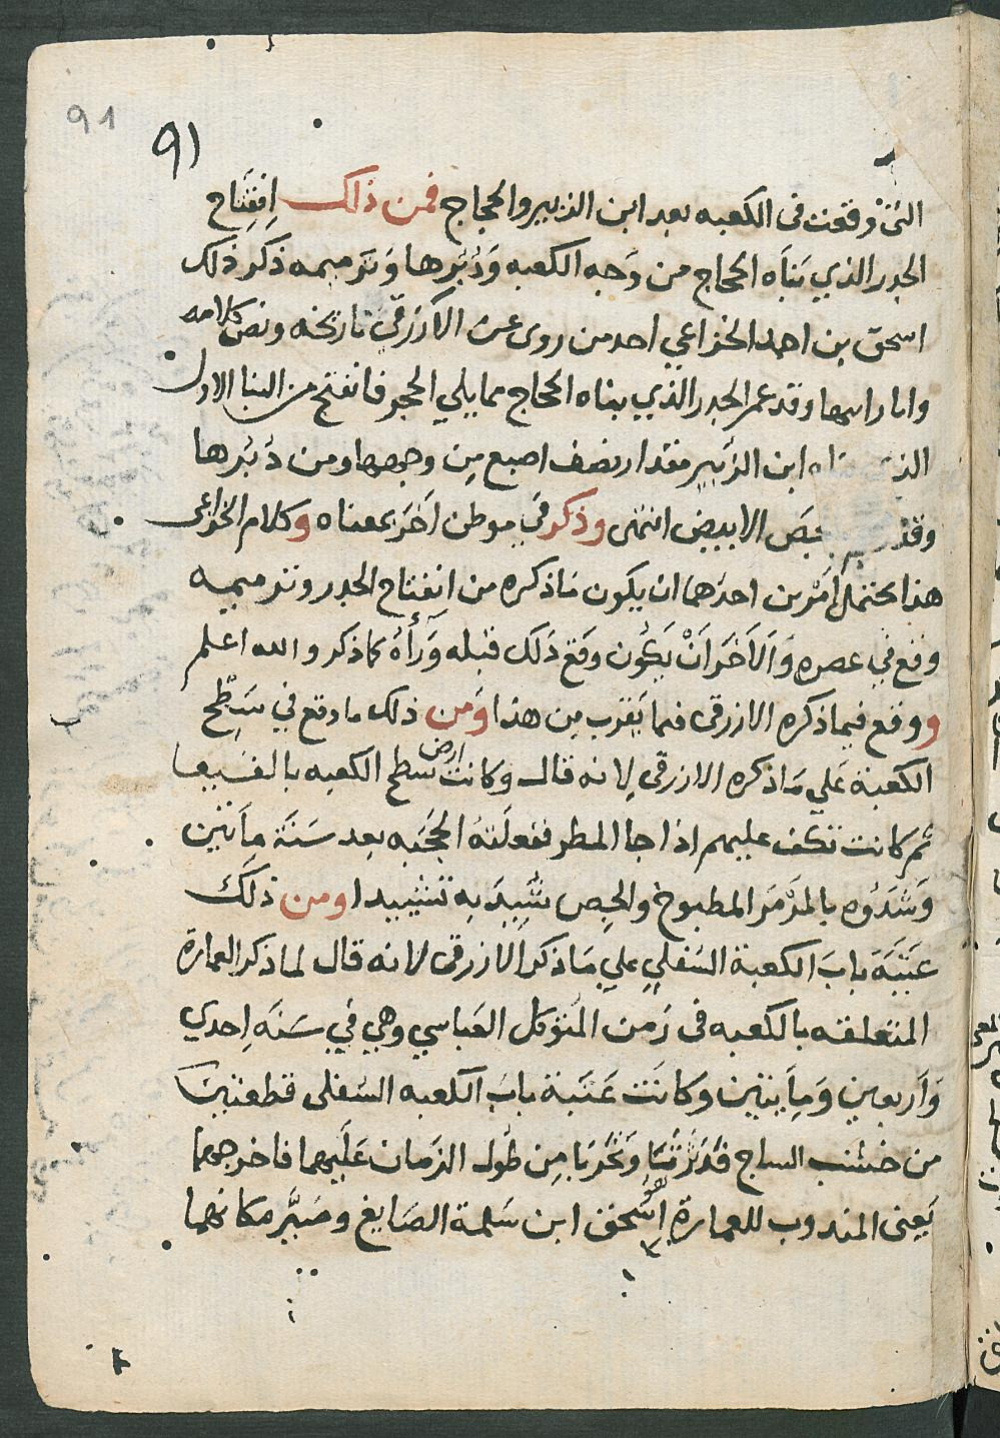 91
٩١
التي وقعت فى الكعبه بعد ابن الزبير والحجاج فمن ذلك اِنفِتَاح
الجدر الذي بَناَه الحجاج من وَجه الكعبه وَدُبَرها وَترميمه ذكر ذلك
اسحق بن احمد الخزاعي احد من روى عن الازرقي تاريخه ونص كلامه
واما راسها وقد عمر الجدر الذي بناه الحجاج مما يلي الحجر فانفتح من البنا الاول
ابن الزبير مقدار نصف اصبع مِن وجهها ومن دُبُرها
وقد الابيض انتهى وذكر في موطن اخَر بمعناه وكلام الخزاعى
هذا يحتمل اَمْرين احدَهما ان يكون مَا ذكره من انِفتاح الجدر وترميميه
وقع في عصره وَالاَخَر اَنْ يَكُون وقع ذَلك قبله وَرأهُ كما ذكر والله اعلم
و ووقع فيما ذكره الازرقى فما يَقرب مِن هذا وَمن ذلك ما وقع في سَطِّح
الكعبة عَلي مَا ذكره الازرقى لانه قال وكانت ارض سطح الكعبه بالفسيفسا
ثم كانت تكف عليهم اذا جا المطر فقلعَتهُ الحجَبَه بعد سَنَة مِاَتين
وَشَدُوه بالمَرْمَر المطبوخ والجِص شُيِّدَ بِه تشييدا ومن ذلَكَ
عَتَبَة بابَ الكعبة السَفلي علي مَا ذكر الازرقى لانه قال لما ذكر العمارة
المتعلقه بالكعبه فى زمن المُتوكل العَباسي وهي في سَنَه اِحدي
وَاَربعين وَمِاَيتين وكانَت عَتَبة بابَ الكعبه السفلى قطعتين
من خشب الساج قَدْ رَثَتَا وَنَخُرَتا مِن طُول الزمان عَلَيهما فاخرجهما
يَعِنى المندوب للعمارة هو اِسْحق ابن سَلمة الصَايغ وصَيَّر مكانهما